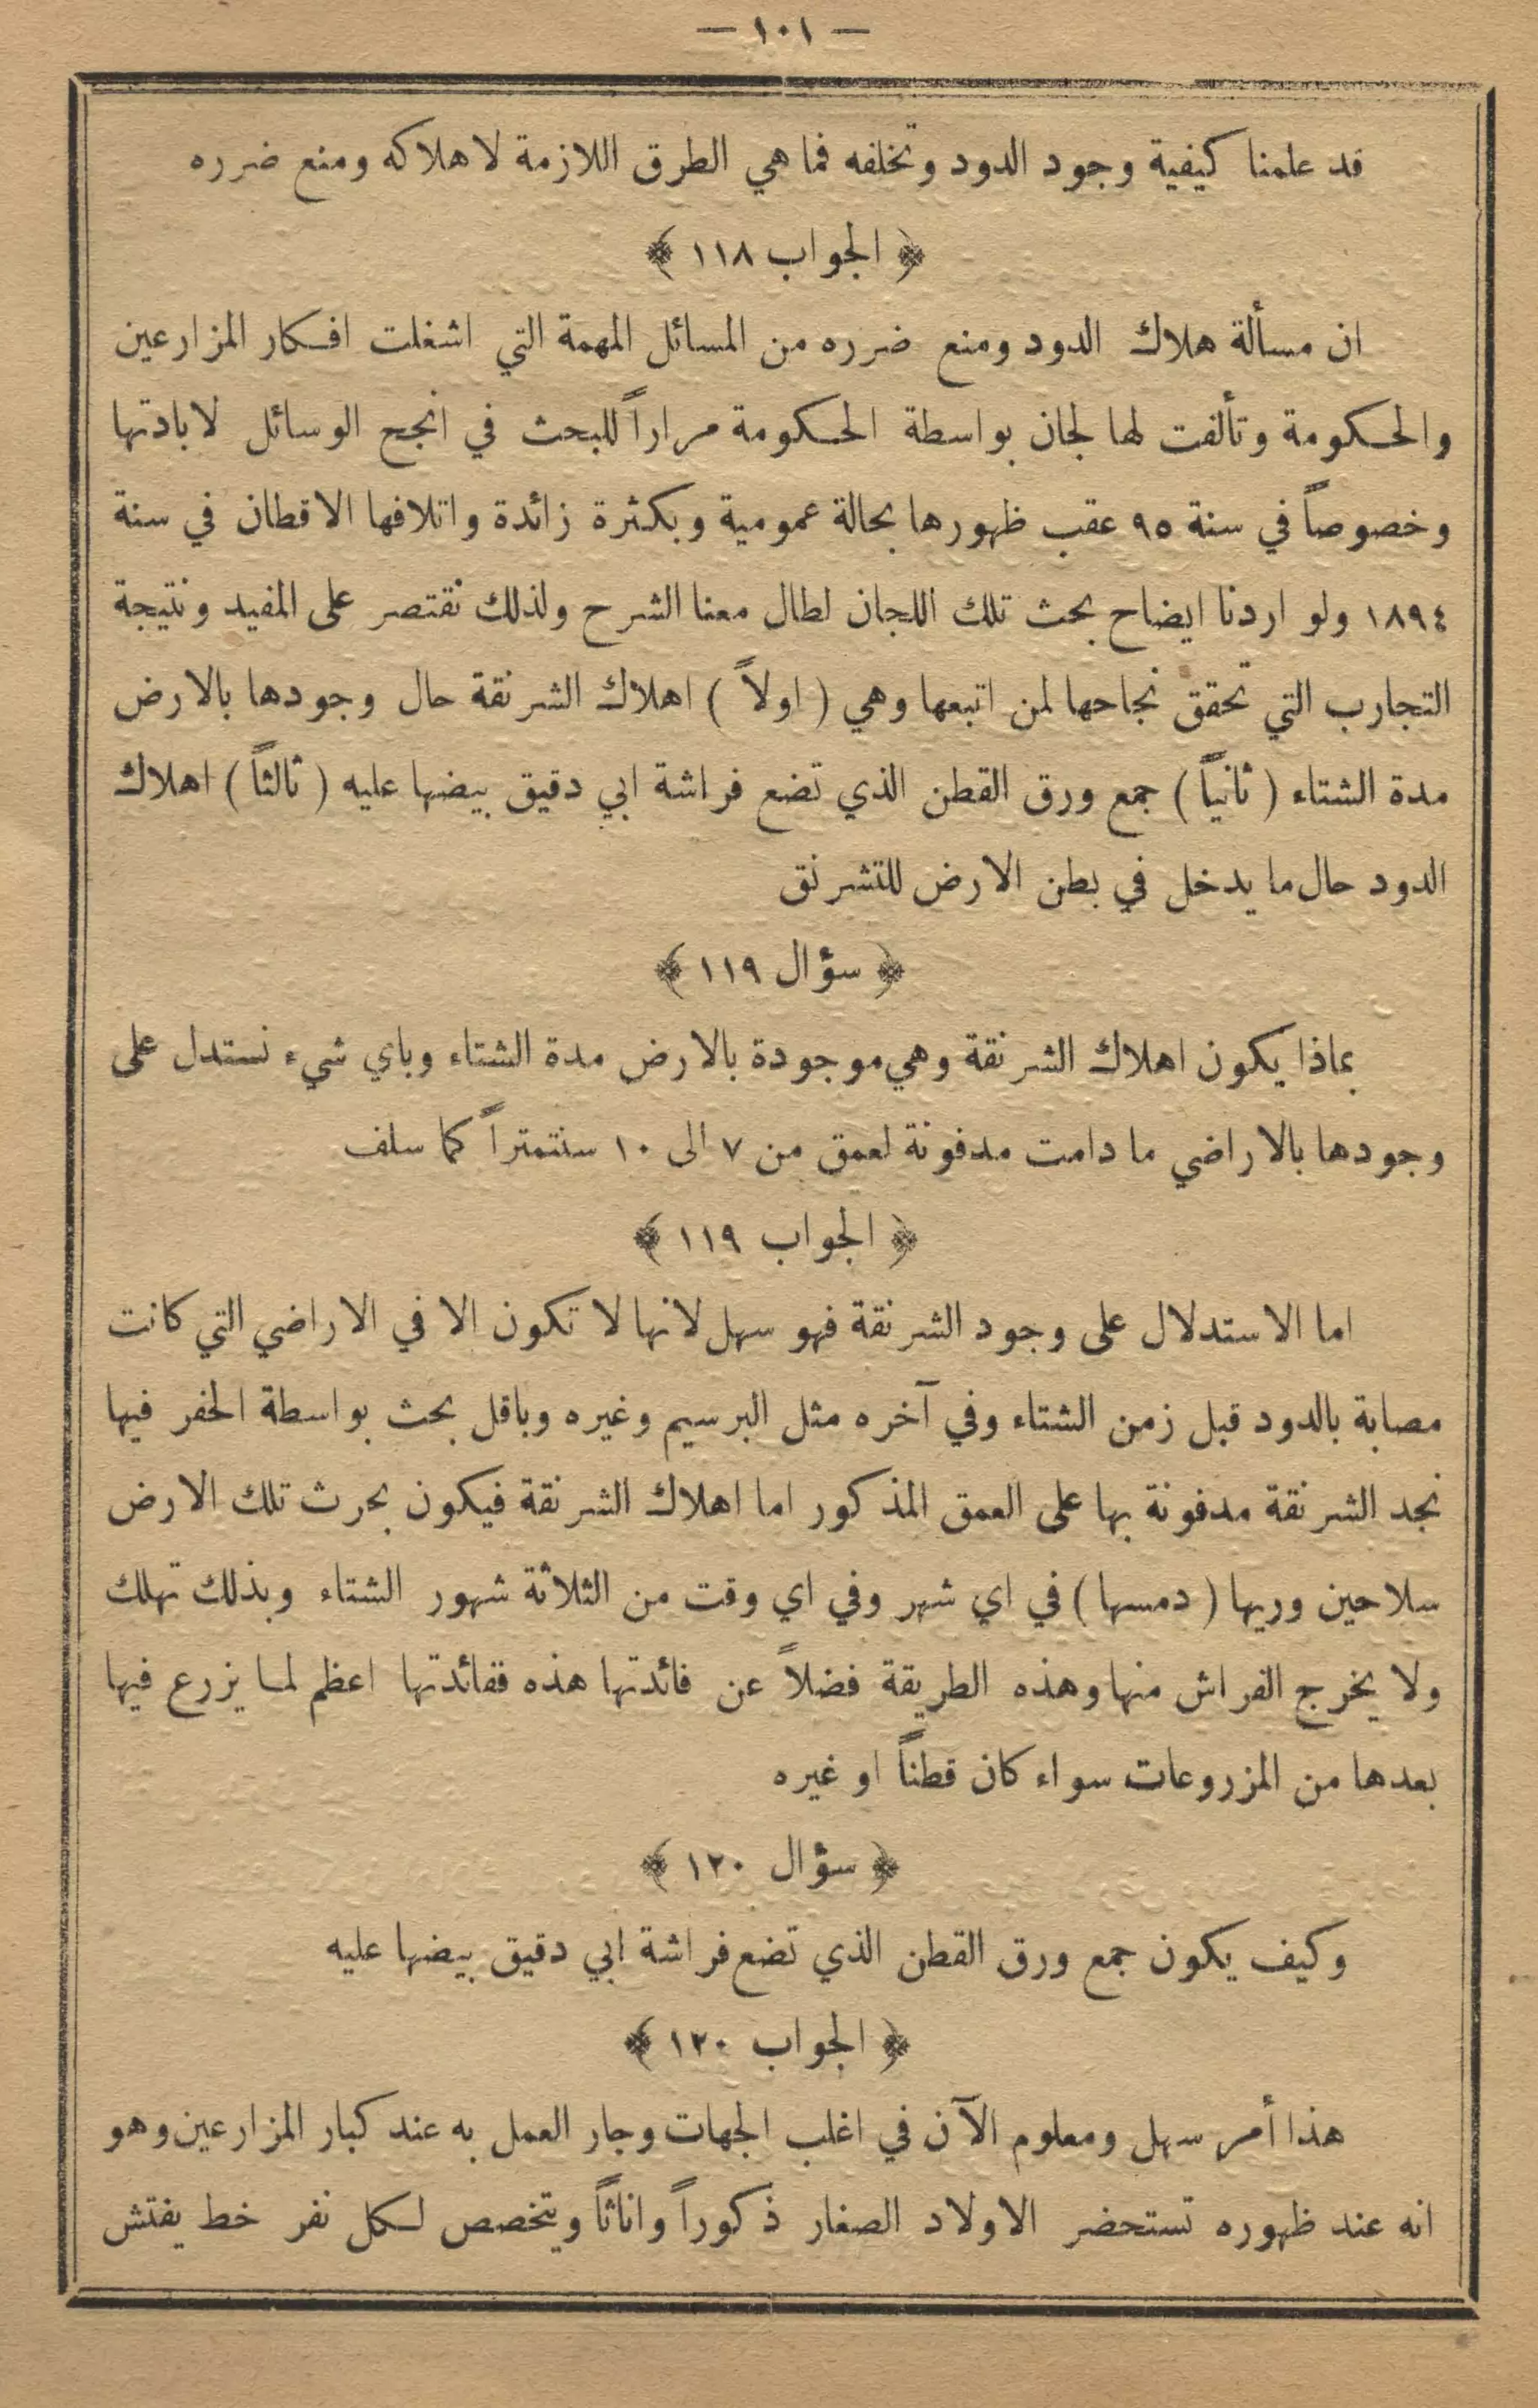 — ١٠١ —
قد علمنا كيفية وجود الدود وتخلفه فما هي الطرق اللازمة لاهلاكه ومنع ضرره
﴿ الجواب ١١٨ ﴾
ان مسألة هلاك الدود ومنع ضرره من المسائل المهمة التي اشغلت افكار المزارعين
والحكومة وتألفت لها لجان بواسطة الحكومة مراراً للبحث في انجح الوسائل لابادتها
وخصوصاً في سنة ٩٥ عقب ظهورها بحالة عمومية وبكثرة زائدة واتلافها الاقطان في سنة
١٨٩٤ ولو اردنا ايضاح بحث تلك اللجان لطال معنا الشرح ولذلك نقتصر على المفيد ونتيجة
التجارب التي تحقق نجاحها لمن اتبعها وهي ( اولاً ) اهلاك الشرنقة حال وجودها بالارض
مدة الشتاء ( ثانياً ) جمع ورق القطن الذي تضع فراشة ابي دقيق بيضها عليه ( ثالثاً ) اهلاك
الدود حال ما يدخل في بطن الارض للتشرنق
﴿ سؤال ١١٩ ﴾
بماذا يكون اهلاك الشرنقة وهي موجودة بالارض مدة الشتاء وباي شيء نستدل على
وجودها بالاراضي ما دامت مدفونة لعمق من ٧ الى ١٠ سنتمتراً كما سلف
﴿ الجواب ١١٩ ﴾
اما الاستدلال على وجود الشرنقة فهو سهل لانها لا تكون الا في الاراضي التي كانت
مصابة بالدود قبل زمن الشتاء وفي آخره مثل البرسيم وغيره وباقل بحث بواسطة الحفر فيها
نجد الشرنقة مدفونة بها على العمق المذكور اما اهلاك الشرنقة فيكون بحرث تلك الارض
سلاحين وريها ( دمسها ) في اي شهر وفي اي وقت من الثلاثة شهور الشتاء وبذلك تهلك
ولا يخرج الفراش منها وهذه الطريقة فضلاً عن فائدتها هذه ففائدتها اعظم لما يزرع فيها
بعدها من المزروعات سواء كان قطناً او غيره
﴿ سؤال ١٢٠ ﴾
وكيف يكون جمع ورق القطن الذي تضع فراشة ابي دقيق بيضها عليه
﴿ الجواب ١٢٠ ﴾
هذا أمر سهل ومعلوم الآن في اغلب الجهات وجار العمل به عند كبار المزارعين وهو
انه عند ظهوره تستحضر الاولاد الصغار ذكوراً واناثاً ويتخصص لكل نفر خط يفتش